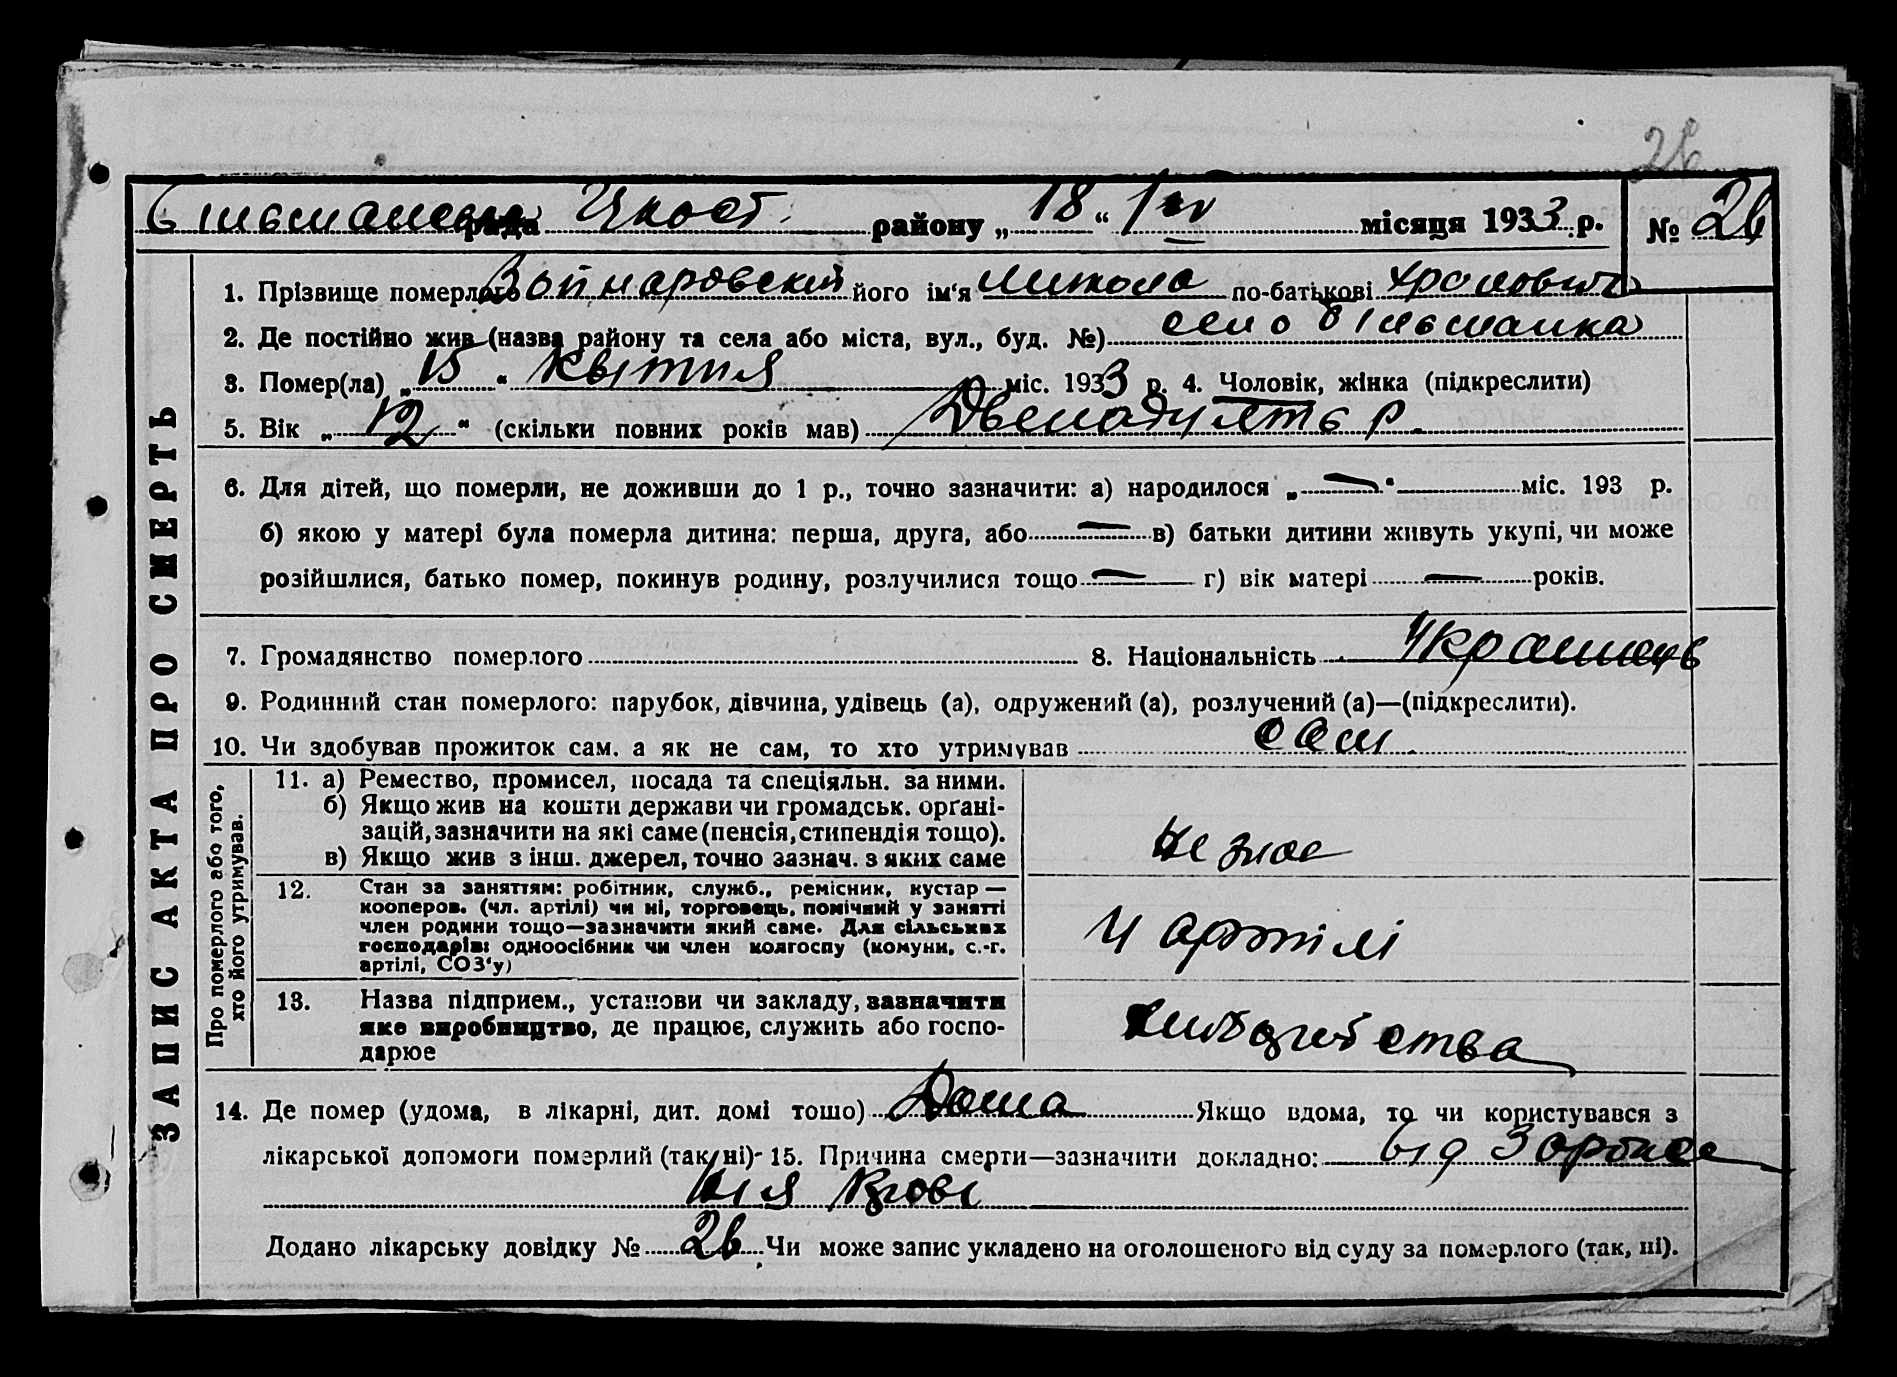 26
Вільшанська рада Чкост. району „18“ IV місяця 1933 р. № 26
ЗАПИС АКТА ПРО СМЕРТЬ
1. Прізвище померлого Войнаровский його ім‘я Микола по-батькові
2. Де постійно жив (назва району та села або міста, вул., буд. №) село Вільшанка
3. Помер(ла) „15“ Квітня міс. 1933 р. 4. Чоловік, жінка (підкреслити)
5. Вік „12“ (скільки повних років мав) Двенадцять р.
6. Для дітей, що померли, не доживши до 1 р., точно зазначити: а) народилося „—“ міс. 193 р.
б) якою у матері була померла дитина: перша, друга, або — в) батьки дитини живуть укупі, чи може
розійшлися, батько помер, покинув родину, розлучилися тощо — г) вік матері — років.
7. Громадянство померлого 8. Національність Українець
9. Родинний стан померлого: парубок, дівчина, удівець (а), одружений (а), розлучений (а)—(підкреслити).
10. Чи здобував прожиток сам. а як не сам, то хто утримував сам.
Про померлого або того, хто його утримував.
11. а) Ремество, промисел, посада та спеціяльн. за ними.
б) Якщо жив на кошти держави чи громадськ. орґані-
зацій, зазначити на які саме (пенсія, стипендія тощо).
в) Якщо жив з інш. джерел, точно зазнач. з яких саме
не знає
12. Стан за заняттям: робітник, служб., ремісник, кустар —
кооперов. (чл. артілі) чи ні, торговець, помічний у занятті
член родини тощо—зазначити який саме. Для сільських
господарів: одноосібник чи член колгоспу (комуни, с.-г.
артілі, СОЗ‘у)
У артілі
13. Назва підприєм., установи чи закладу, зазначити
яке виробництво, де працює, служить або госпо-
дарює
14. Де помер (удома, в лікарні, дит. домі тошо) Дома Якщо вдома, то чи користувався з
лікарської допомоги померлий (так, ні)- 15. Причина смерти—зазначити докладно: від Заражен
ня крові
Додано лікарську довідку № 26 Чи може запис укладено на оголошеного від суду за померлого (так, ні).